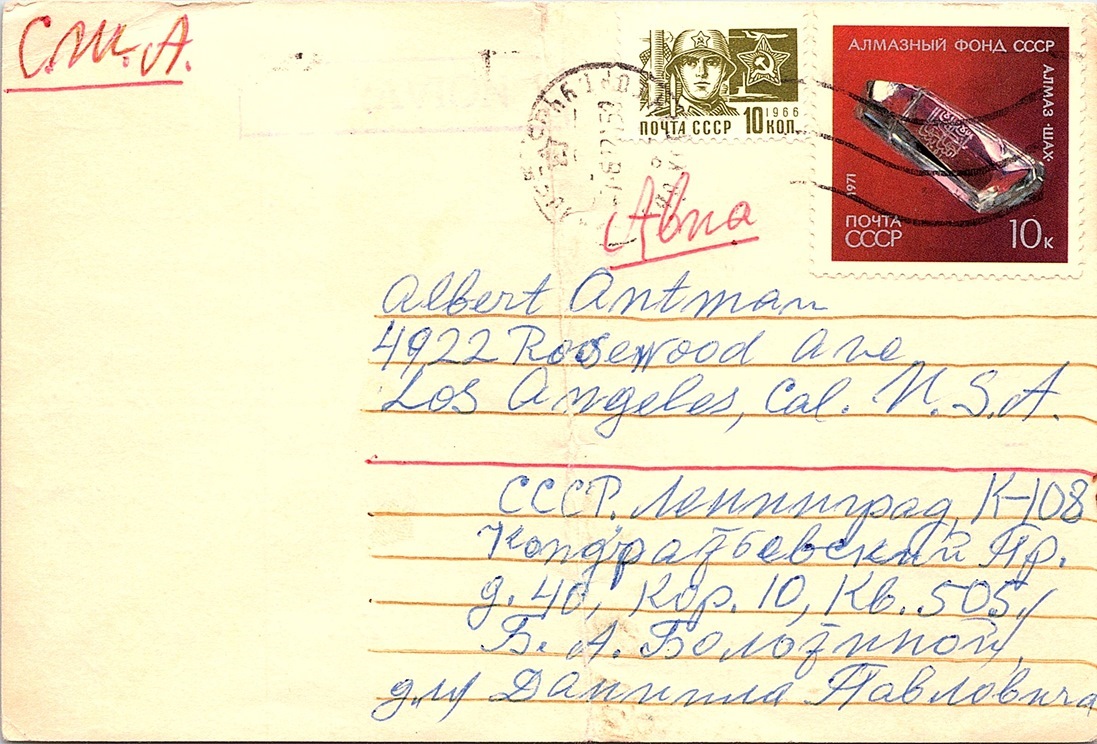 С.Ш.А.
АЛМАЗНЫЙ ФОНД СССР
АЛМАЗ "ШАХ"
1971
ПОЧТА
СССР
10к
1966
ПОЧТА СССР 10КОП.
Авиа
Albert Antman
4922 Rosewood Ave
Los Angeles, Cal. U.S.A.
СССР. Ленинград, К-108
Кондратьевский Пр.
д. 40, Кор. 10, Кв. 505,
Б. А. Болотиной,
для Даниила Павловича